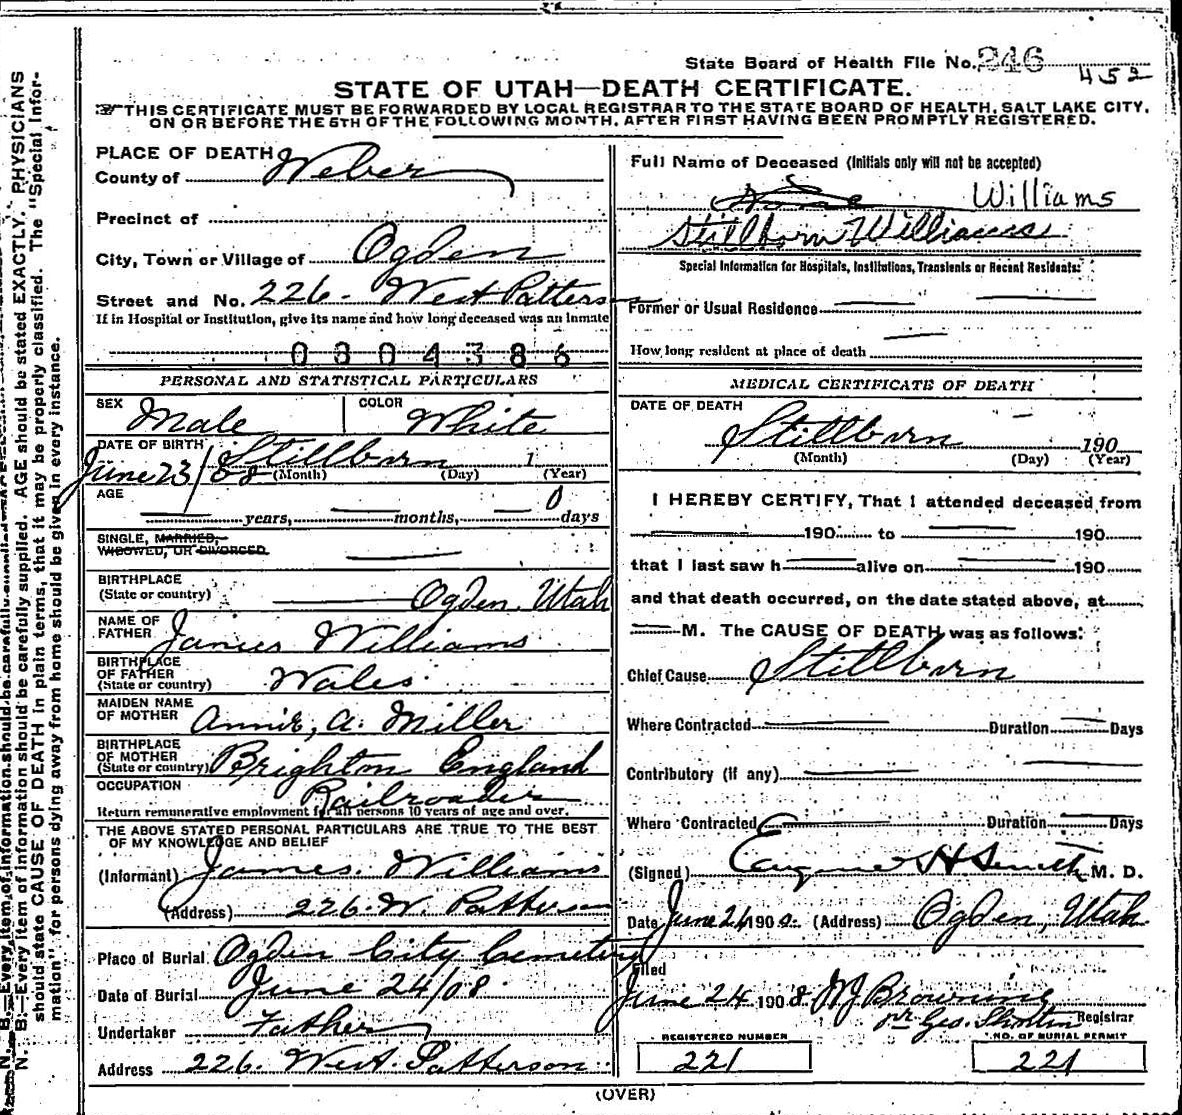 State Board of Health File No. 246
452
STATE OF UTAH—DEATH CERTIFICATE.
THIS CERTIFICATE MUST BE FORWARDED BY LOCAL REGISTRAR TO THE STATE BOARD OF HEALTH, SALT LAKE CITY,
ON OR BEFORE THE 5TH OF THE FOLLOWING MONTH, AFTER FIRST HAVING BEEN PROMPTLY REGISTERED.
PLACE OF DEATH
County of Weber
Precinct of
City, Town or Village of Ogden
Street and No. 226. West Patterson
If in Hospital or Institution, give its name and how long deceased was an inmate
0804386
PERSONAL AND STATISTICAL PARTICULARS
SEX Male COLOR White
DATE OF BIRTH Stillborn 1
June 23/08 (Month) (Day) (Year)
AGE
years, months, 0 days
SINGLE, MARRIED,
WIDOWED, OR DIVORCED
BIRTHPLACE
(State or country) Ogden, Utah
NAME OF
FATHER James Williams
BIRTHPLACE
OF FATHER
(State or country) Wales
MAIDEN NAME
OF MOTHER Annie, A. Miller
BIRTHPLACE
OF MOTHER
(State or country) Brighton England
OCCUPATION Railroader
Return remunerative employment for all persons 10 years of age and over.
THE ABOVE STATED PERSONAL PARTICULARS ARE TRUE TO THE BEST
OF MY KNOWLEDGE AND BELIEF
(Informant) James. Williams
(Address) 226. W. Patterson
Place of Burial Ogden City Cemetery
Date of Burial June 24/08.
Undertaker Father
Address 226. West. Patterson
Full Name of Deceased (Initials only will not be accepted)
Williams
Stillborn Williams
Special Information for Hospitals, Institutions, Transients or Recent Residents:
Former or Usual Residence
How long resident at place of death
MEDICAL CERTIFICATE OF DEATH
DATE OF DEATH
Stillborn 190
(Month) (Day) (Year)
I HEREBY CERTIFY, That I attended deceased from
190 to 190
that I last saw h alive on 190
and that death occurred, on the date stated above, at
M. The CAUSE OF DEATH was as follows:
Chief Cause Stillborn
Where Contracted Duration Days
Contributory (if any)
Where Contracted Duration Days
(Signed) Eugene H. Smith M. D.
Date June 24 190 (Address) Ogden, Utah
Filed
June 24 1908 W J Browning
Registrar
pr Geo.
REGISTERED NUMBER
221
NO. OF BURIAL PERMIT
221
(OVER)
N. B.—Every item of information should be carefully supplied. AGE should be stated EXACTLY. PHYSICIANS
should state CAUSE OF DEATH in plain terms, that it may be properly classified. The "Special Infor-
mation" for persons dying away from home should be given in every instance.